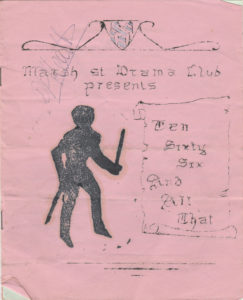 Marsh St Drama Club
presents
Ten
Sixty
Six
And
All
That